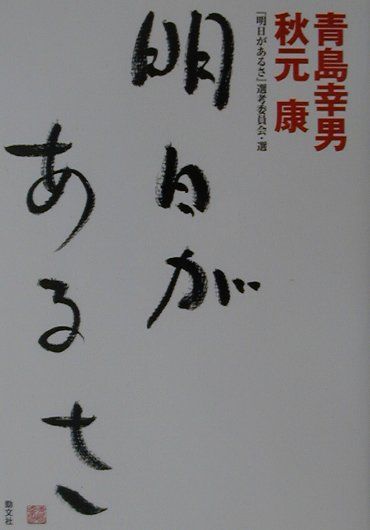 青島幸男
秋元 康
「明日があるさ」選考委員会・選
明日が
あるさ
勁文社